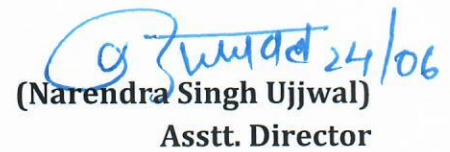 24/06
(Narendra Singh Ujjwal)
Asstt. Director